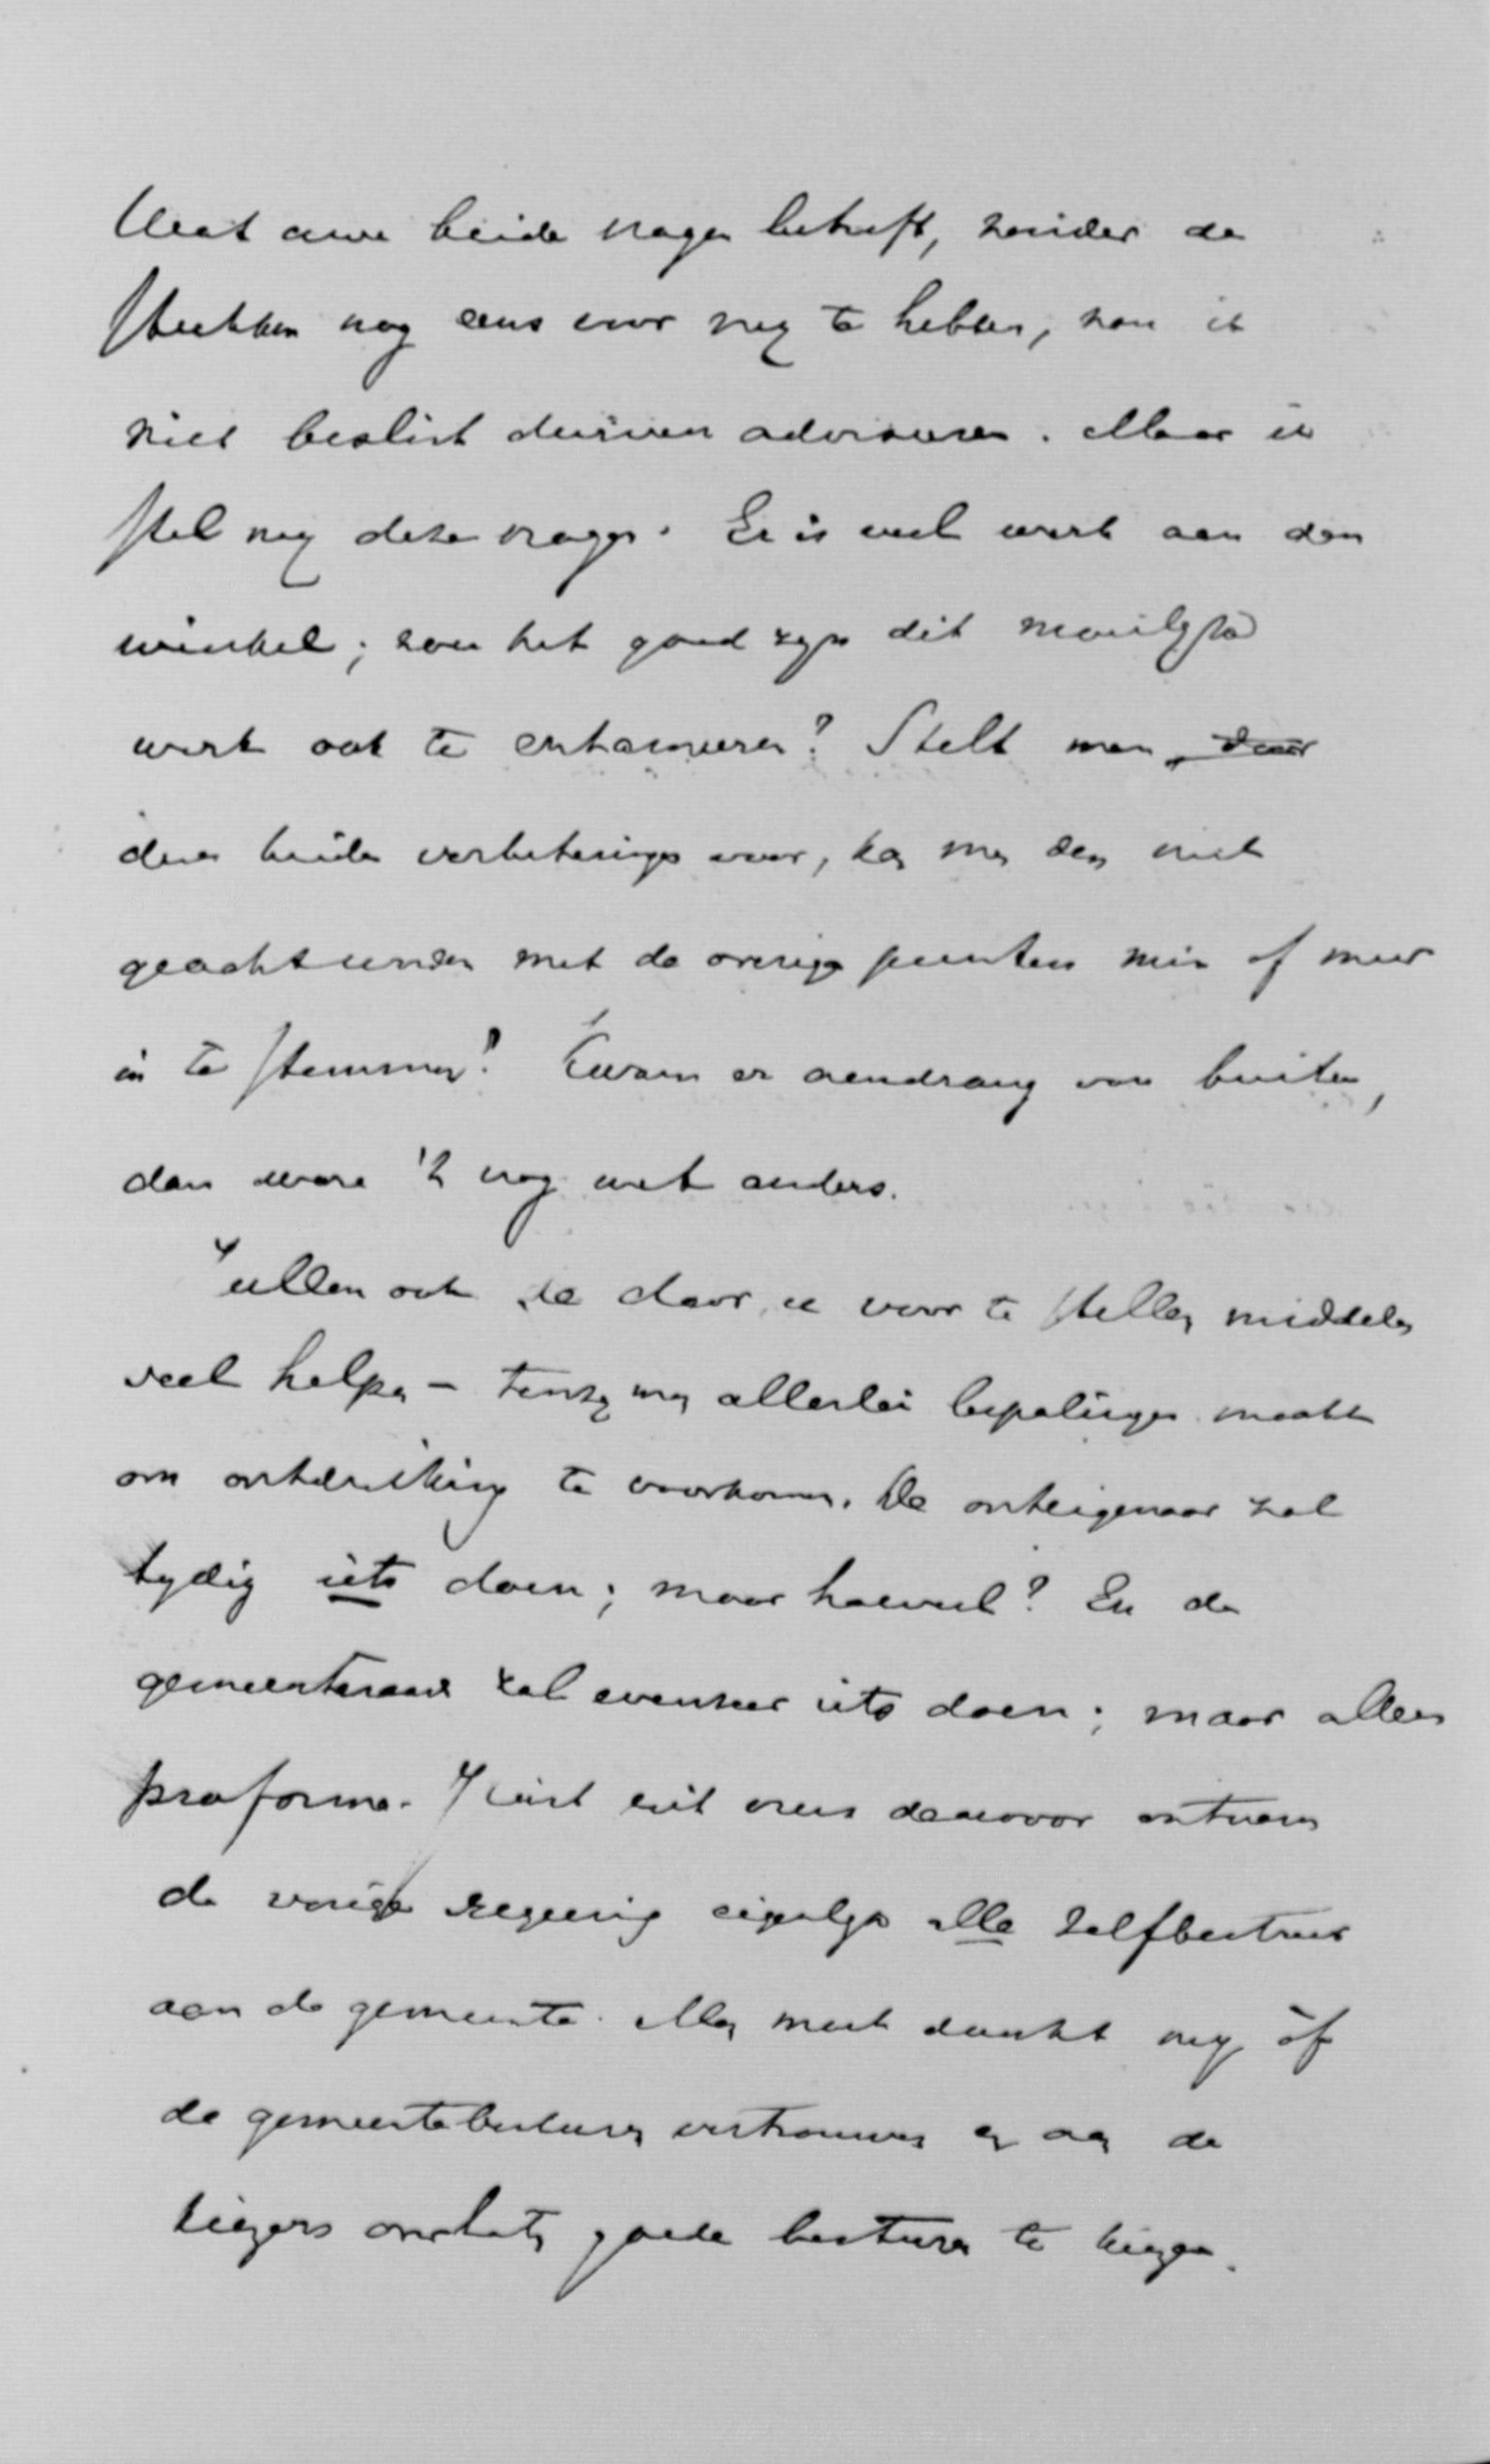 Wat uwe beide vragen betreft, zonder de
stukken nog eens voor mij te hebben, zou ik
niet beslist durven adviseeren. Maar ik
stel mij deze vragen. Er is veel werk aan den
winkel; zou het goed zijn dit moeilijke
werk ook te entameeren? Stelt men daar
deze beide verbeteringen voor, kan men dan niet
geacht worden met de overige punten min of meer
in te stemmen? Kwam er aandrang van buiten,
dan ware 't nog wat anders.
Zullen ook de door u voor te stellen middelen
veel helpen - tenzij men allerlei bepalingen maakt
om ontduiking te voorkomen. De onteigenaar zal
tijdig iets doen; maar hoeveel? En de
gemeenteraad zal evenzeer iets doen; maar alleen
pro forma. Juist uit vrees daarvoor ontnam
de vorige regeering eigenlijk alle zelfbestuur
aan de gemeente. Men moet dunkt mij òf
de gemeentebesturen vertrouwen en aan de
kiezers overlaten goede besturen te kiezen.